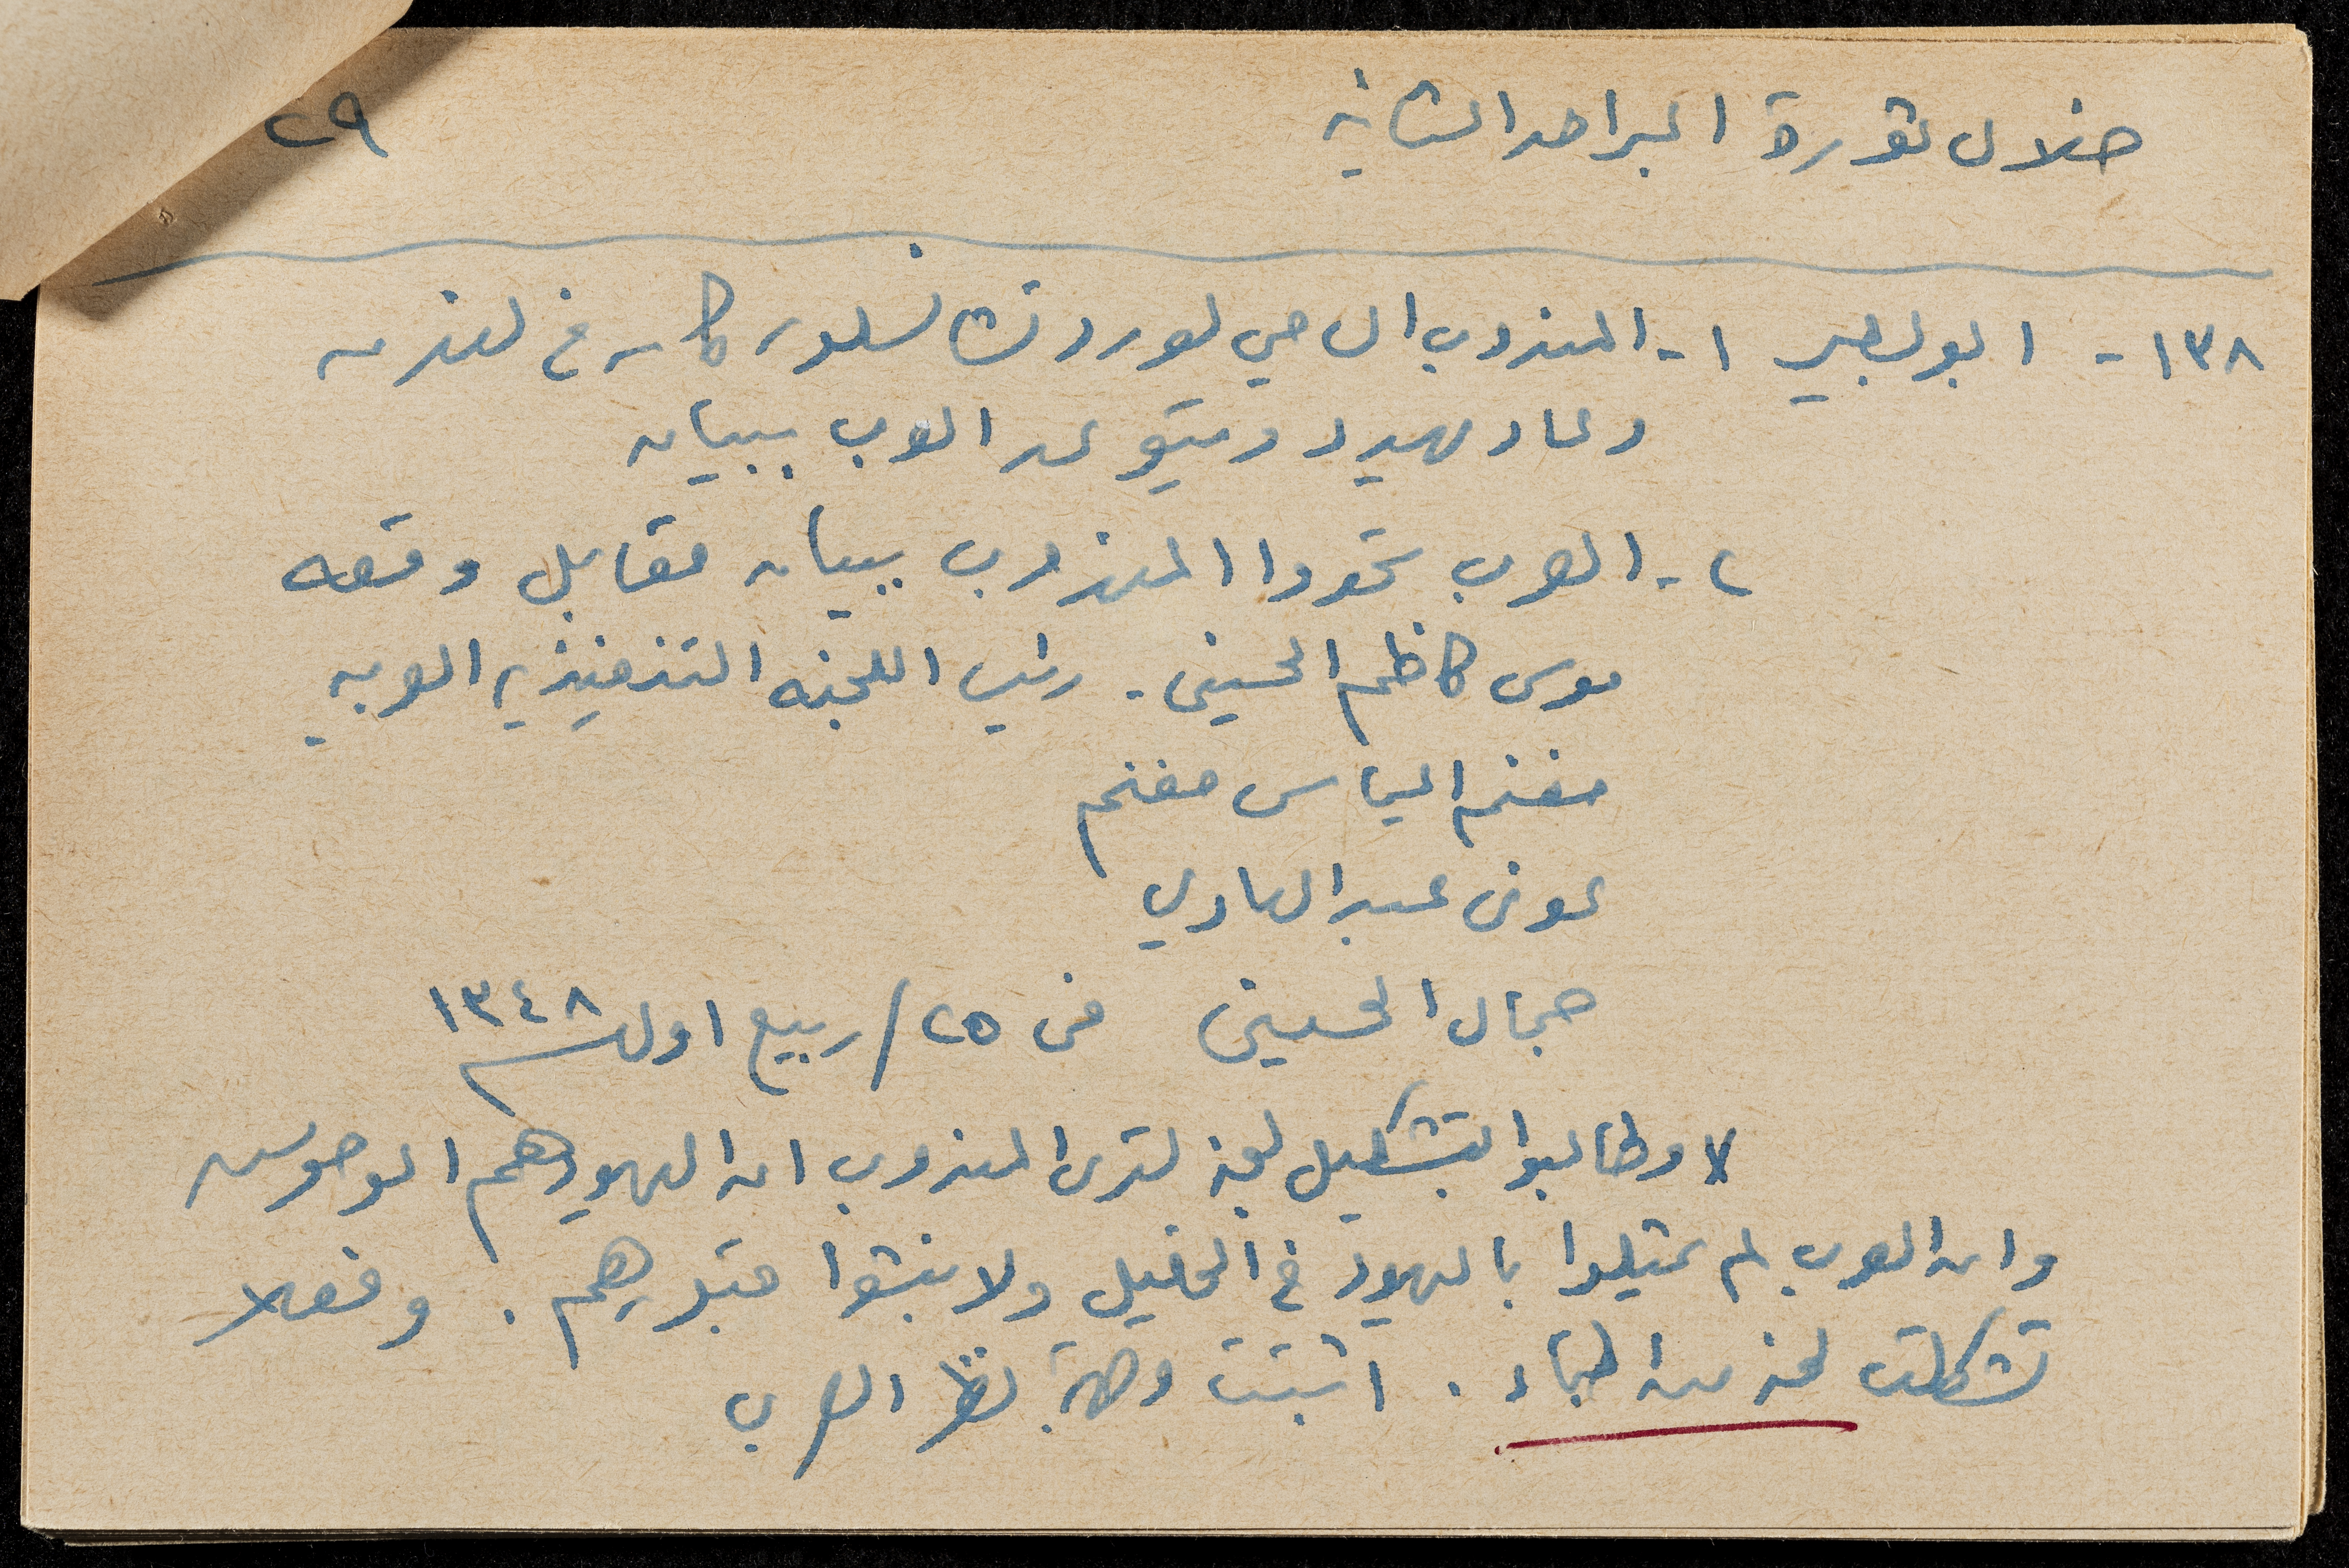 خلال ثورة البراق الثانية
٢٩
١٣٨ - ابو لطيف ١ - المندوب السامي لورد تشانسلور كان في لندن
وعاد يهدد ويتوعد العرب ببيان
٢ - العرب تحدوا المندوب ببيان مقابل وقعه
موسى كاظم الحسيني . رئيس اللجنه التنفيذيه العربيه
مغنم الياس مغنم
عوني عبد الهادي
جمال الحسيني في ٢٥ / ربيع اول ١٣٤٨
وطالبوا بتشكيل لجنة لترى المندوب ان اليهود هم الوحوش
وان العرب لم يمثلوا باليهود في الخليل ولا نبشوا قبورهم . وفعلا
تشكلت لجنة من اطباء . اثبتت وجهة نظر العرب